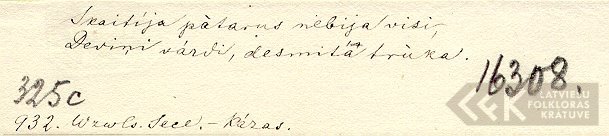 Skaitīja pàtarus nebija visi,
Deviņi vārdi, desmitā trùka.
16308.
325c
932. Wrwls. Sece. - Rāzas.
LATVIEŠU
FOLKLORAS
KRĀTUVE